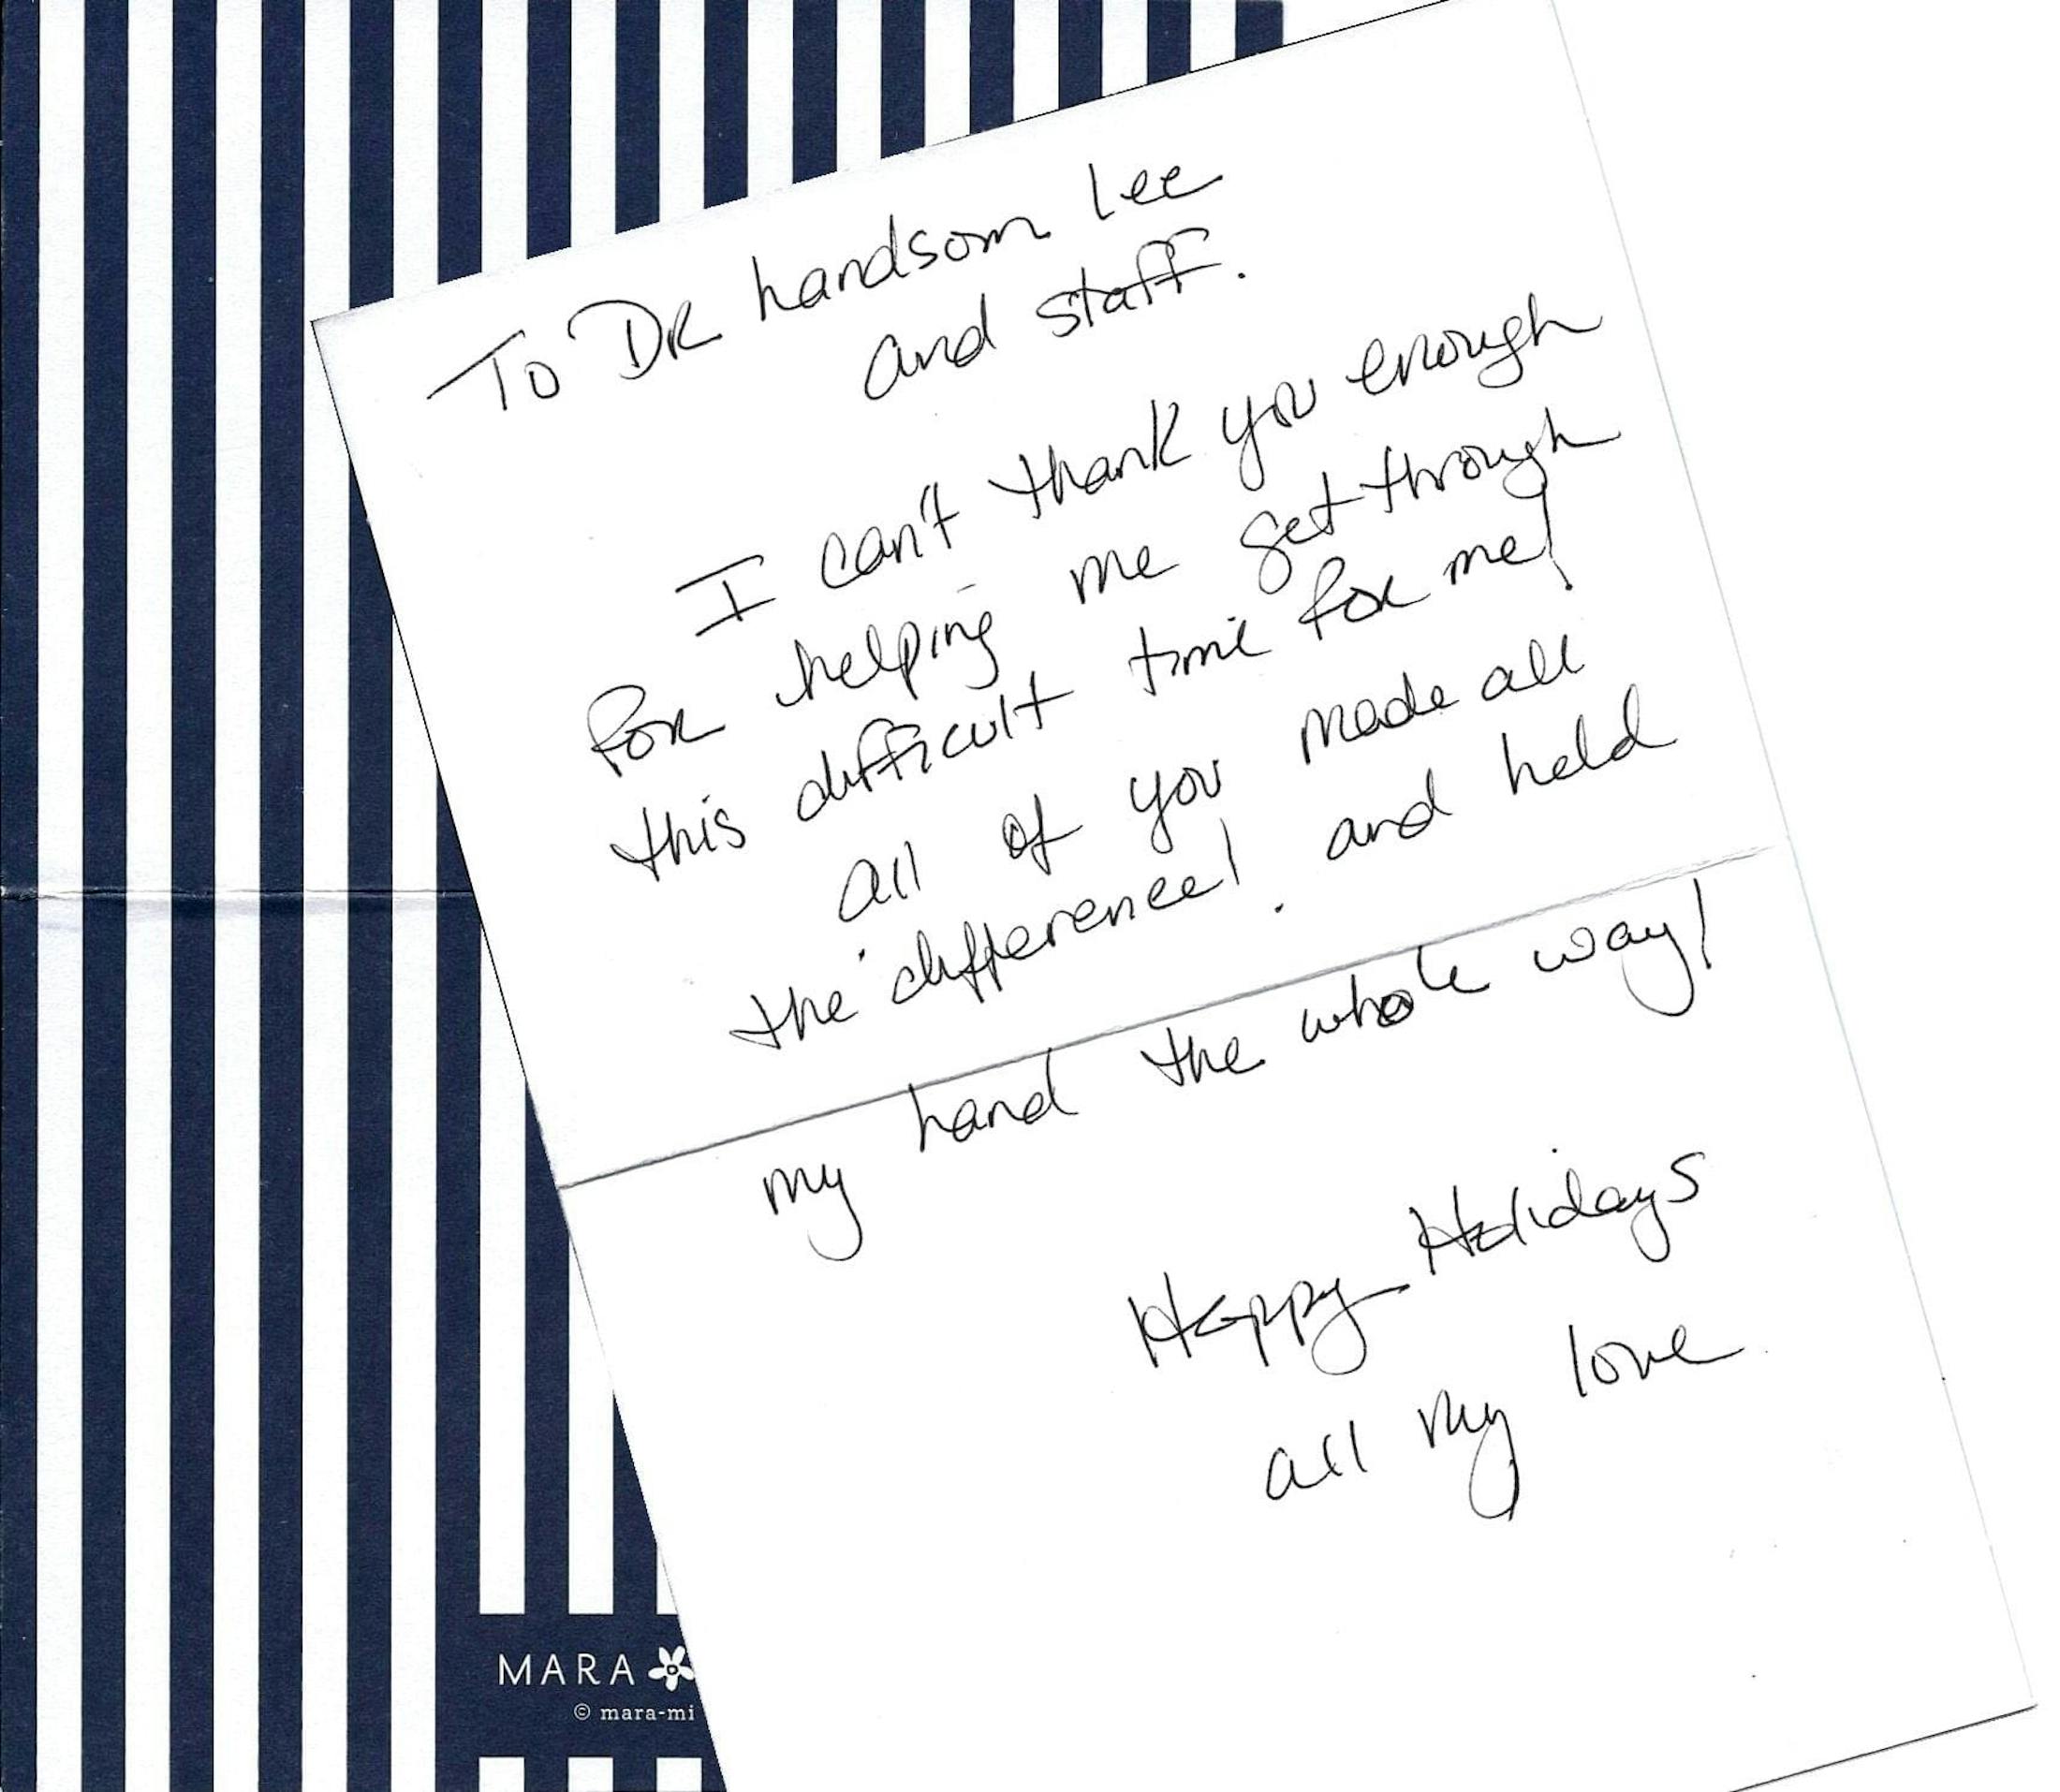 To DR handsom Lee
and staff.
I can't thank you enough
for helping me get through
this difficult time for me!
all of you made all
the difference! and held
my hand the whole way!
Happy Holidays
all my love
MARA
© mara-mi